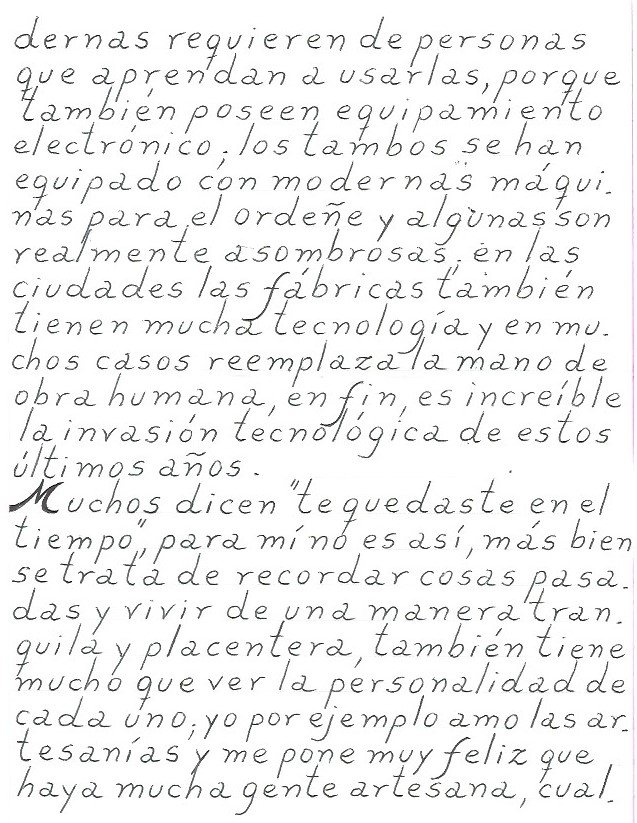 dernas requieren de personas
que aprendan a usarlas, porque
también poseen equipamiento
electrónico; los tambos se han
equipado con modernas máqui-
nas para el ordeñe y algunas son
realmente asombrosas; en las
ciudades las fábricas también
tienen mucha tecnología y en mu-
chos casos reemplaza la mano de
obra humana, en fin, es increíble
la invasión tecnológica de estos
últimos años.
Muchos dicen "te quedaste en el
tiempo", para mí no es así, más bien
se trata de recordar cosas pasa-
das y vivir de una manera tran-
quila y placentera, también tiene
mucho que ver la personalidad de
cada uno; yo por ejemplo amo las ar-
tesanías y me pone muy feliz que
haya mucha gente artesana, cual-